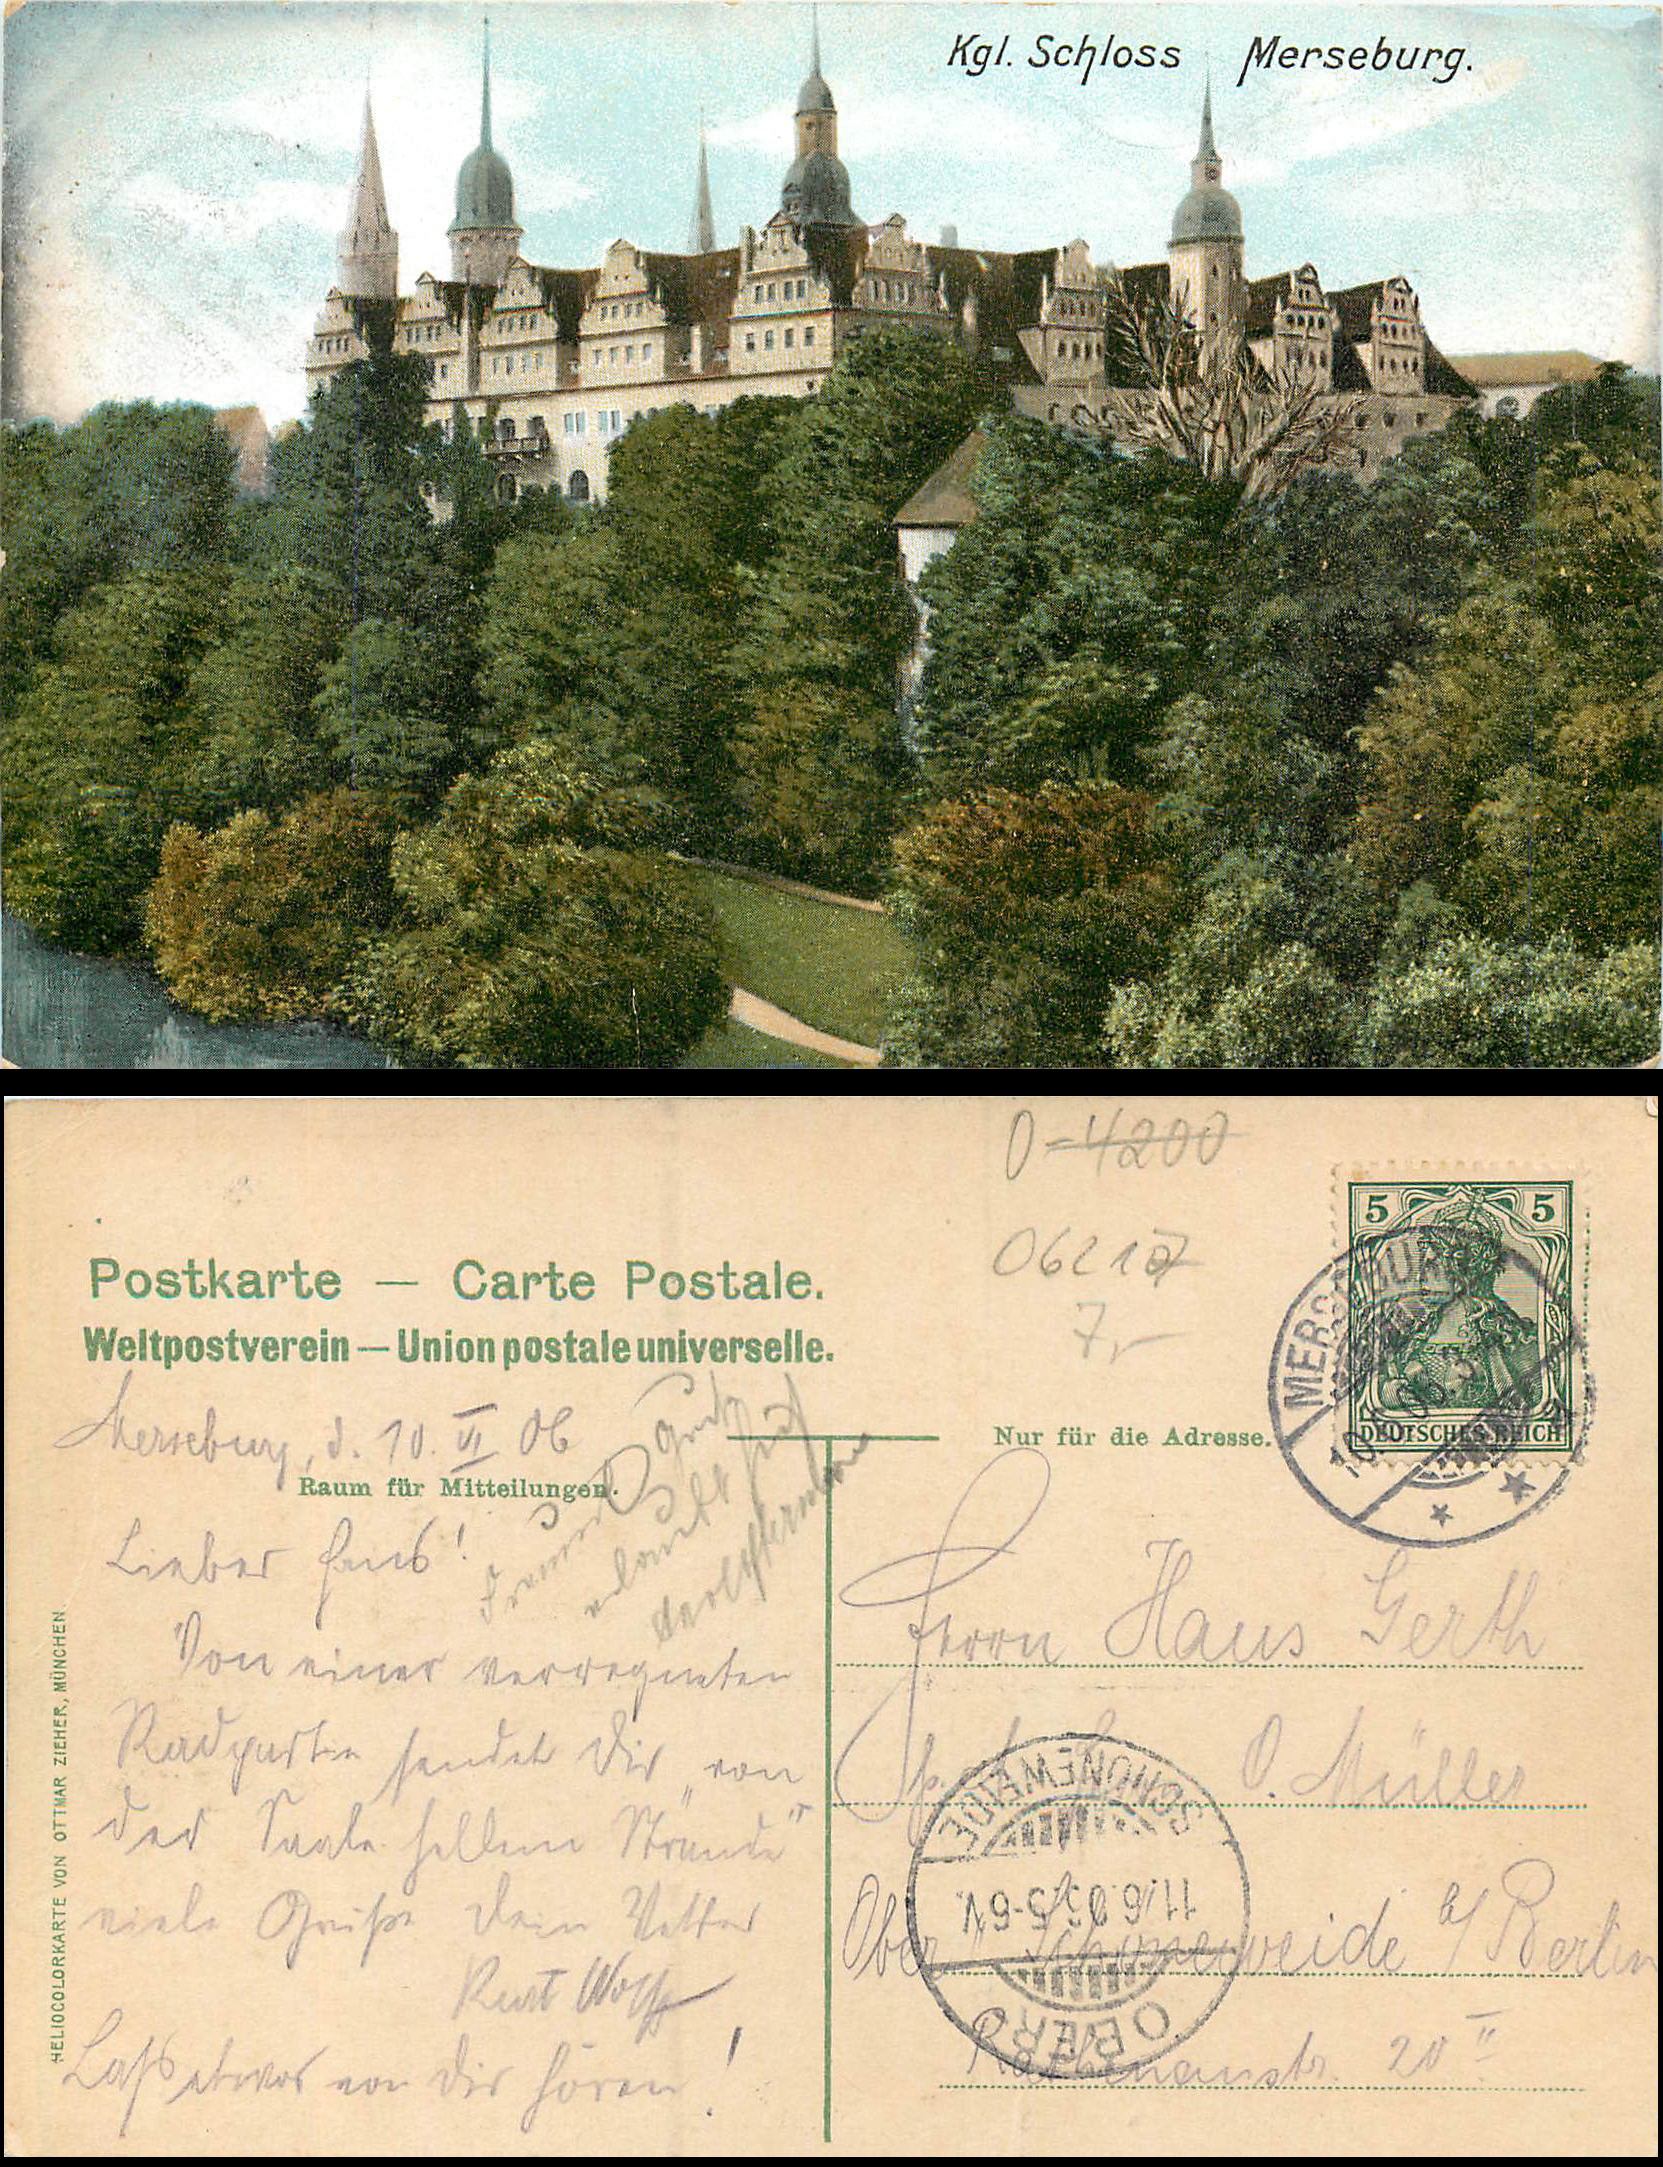 Kgl. Schloss Merseburg.
O-4200
06217
7,-
Postkarte — Carte Postale.
Weltpostverein — Union postale universelle.
5 5
DEUTSCHES REICH
MERSEBURG
10.6.06.
Nur für die Adresse.
Merseburg, d. 10. VI 06
Raum für Mitteilungen.
Lieber Hans!
Von einer verregneten
Radpartie sendet Dir „von
der Saale hellem Strande"
viele Grüße Dein Vetter
Kurt Wolff
Laß etwas von Dir hören!
Freund
Herrn Hans Gerth
O. Müller
Ober Schöneweide b/ Berlin
Rathenaustr. 20 II
OBER SCHÖNEWEIDE
11.6.06. 5-6V.
HELIOCOLORKARTE VON OTTMAR ZIEHER, MÜNCHEN.